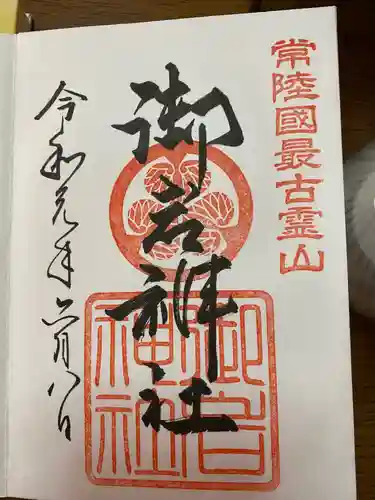 常陸國最古霊山
御岩神社
御岩神社
令和元年六月八日